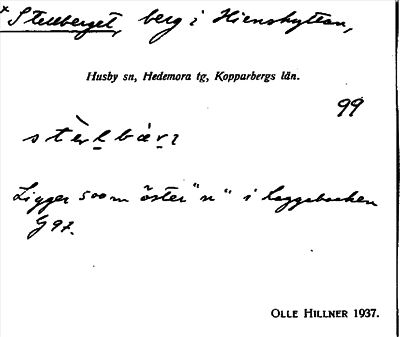 × Stellberget, berg i Hienshyttan,
Husby sn, Hedemora tg, Kopparbergs län.
99
Ligger 500 m öster "n" i Laggobacken
G 97.
OLLE HILLNER 1937.